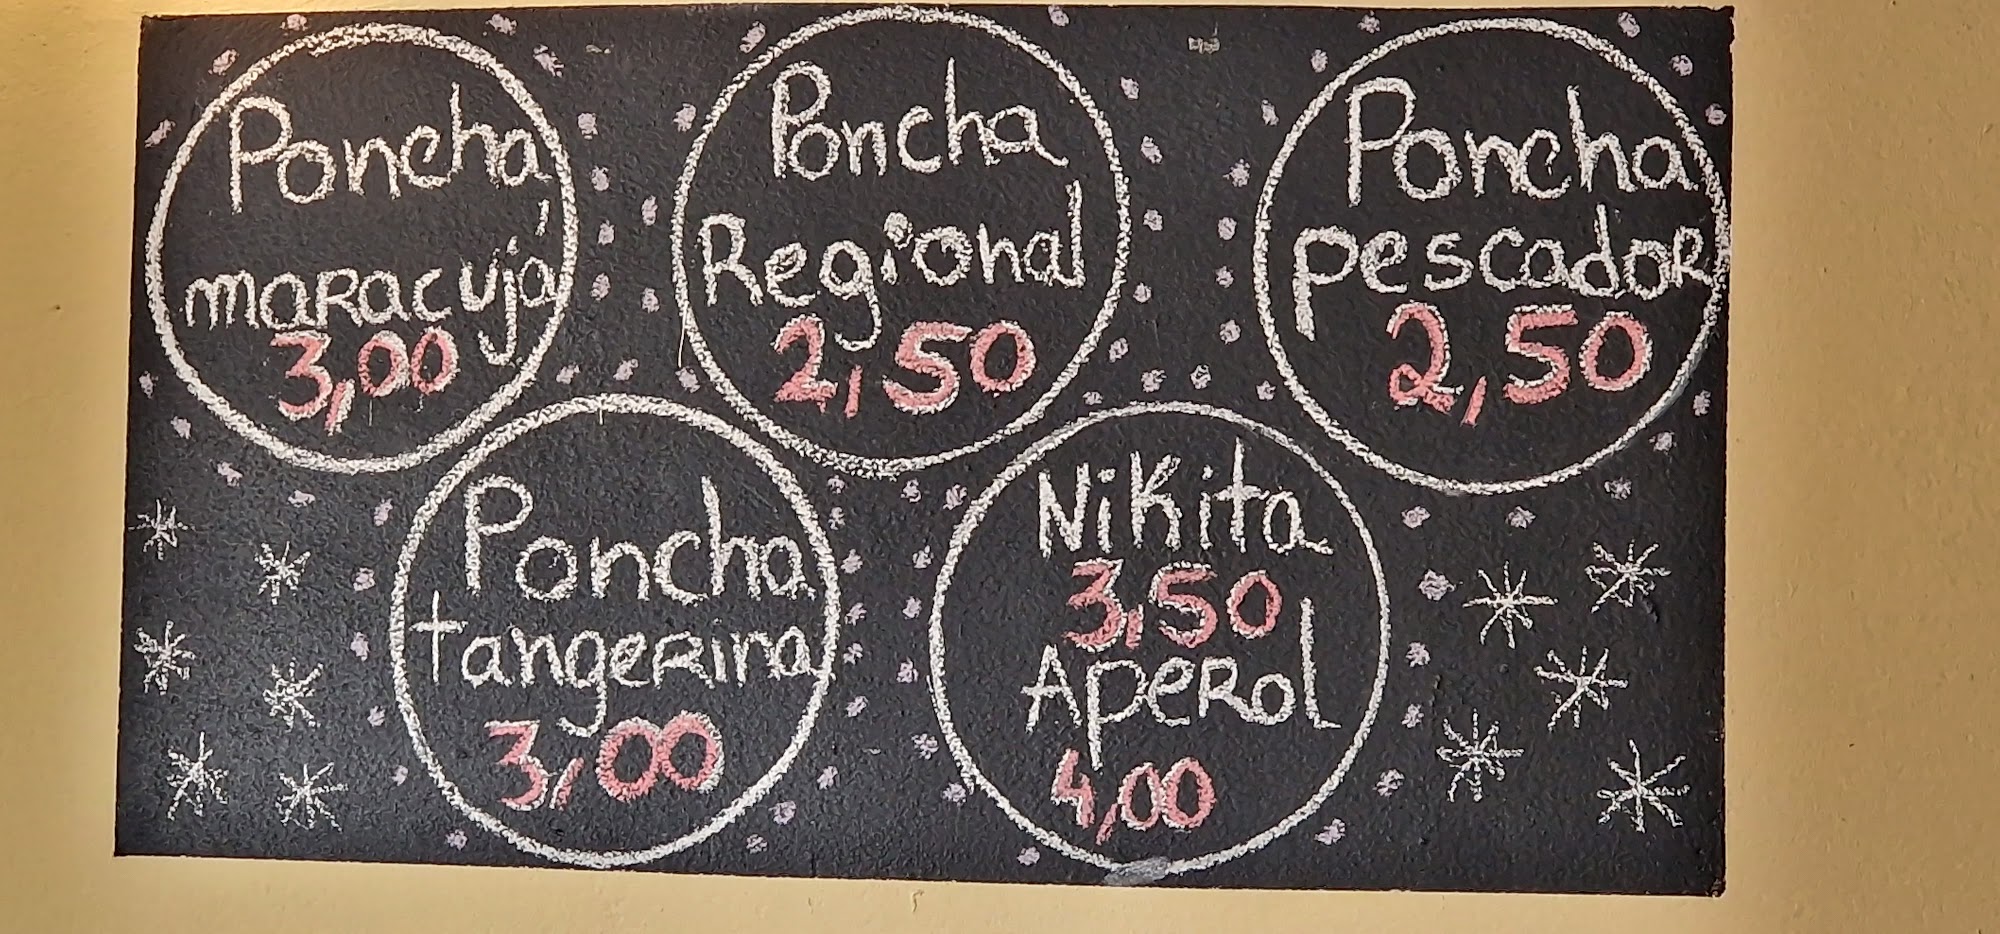 Poncha
maracujá
3,00
Poncha
Regional
2,50
Poncha
pescador
2,50
Poncha
tangerina
3,00
Nikita
3,50
Aperol
4,00